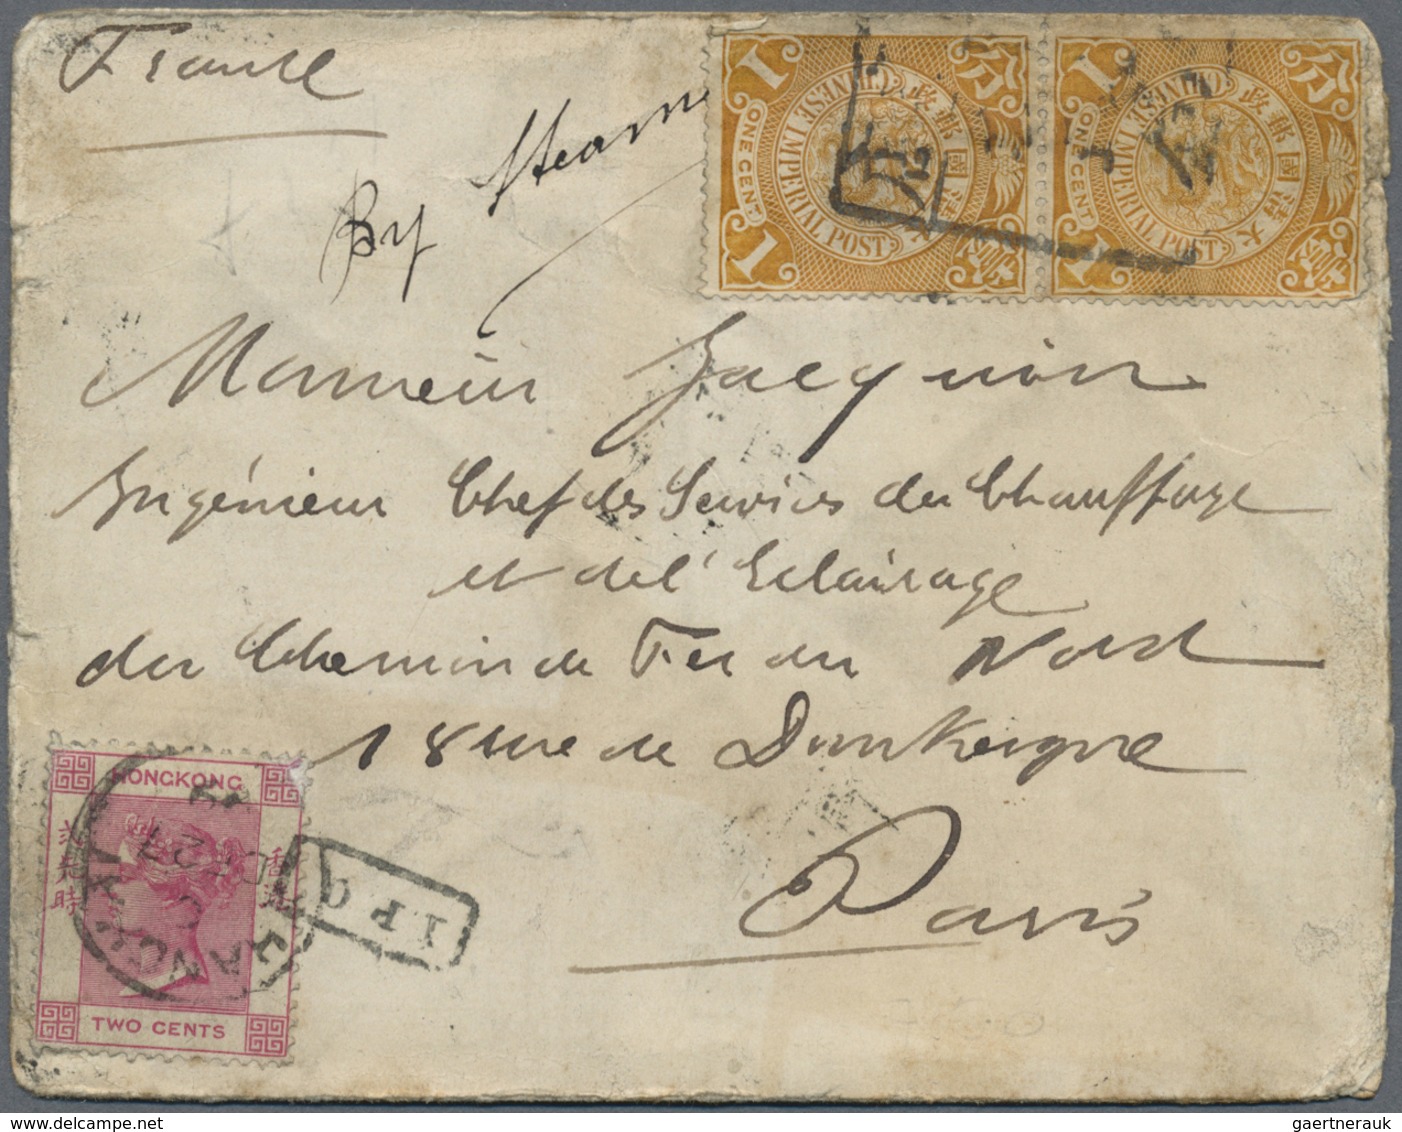 France
By Steamer
1 分 1 分
CHINESE IMPERIAL POST 大清國郵政
CHINESE IMPERIAL POST 大清國郵政
ONE CENT ONE CENT
1 1
Monsieur Jacquin
Ingénieur Chef des Services du Chauffage
et de l'Eclairage
du Chemin de Fer du Nord
18 rue de Dunkerque
Paris
HONGKONG
香港
TWO CENTS
I.P.O
gaertnerauk @ www.delcampe.net